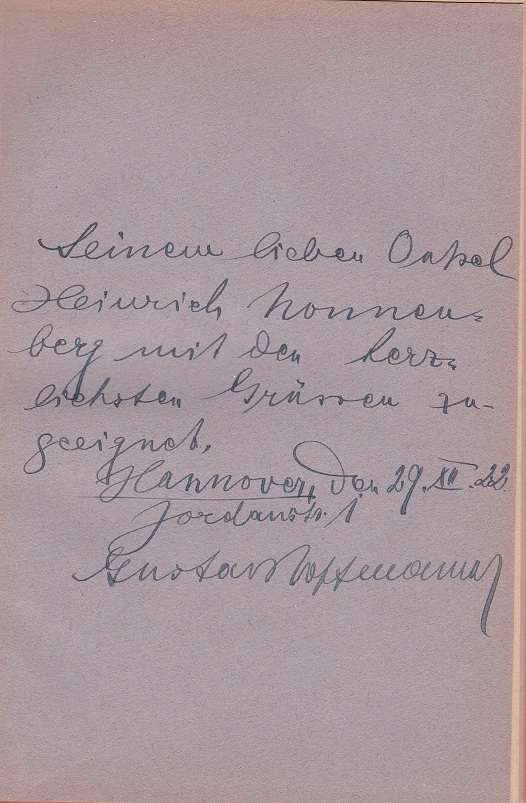 Seinem lieben Onkel
Heinrich Nonnen-
berg mit den herz-
lichsten Grüssen zu-
geeignet.
Hannover, den 29. XII. 22.
Jordanstr. 1
Gustav